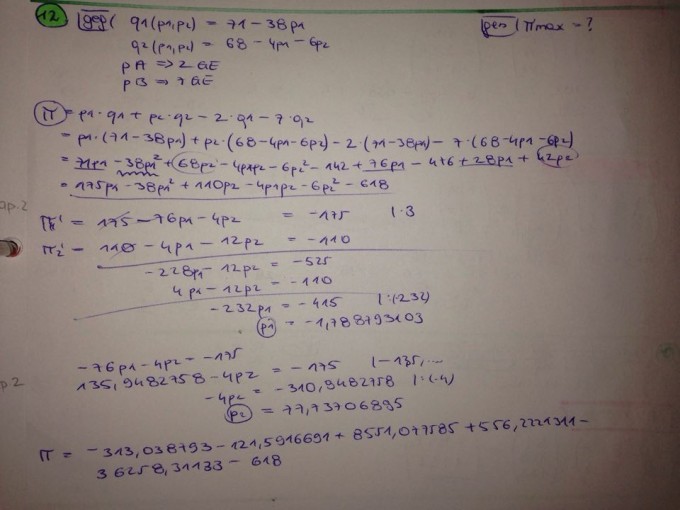 12 geg( q1(p1,p2) = 71 - 38p1 ges( Πmax = ?
q2(p1,p2) = 68 - 4p1 - 6p2
pA => 2 GE
pB => 7 GE
Π = p1·q1 + p2·q2 - 2·q1 - 7·q2
= p1·(71-38p1) + p2·(68-4p1-6p2) - 2·(71-38p1) - 7·(68-4p1-6p2)
= 71p1 - 38p1² + 68p2 - 4p1p2 - 6p2² - 142 + 76p1 - 476 + 28p1 + 42p2
= 175p1 - 38p1² + 110p2 - 4p1p2 - 6p2² - 618
ap.2
Π1' = 175 - 76p1 - 4p2 = -175 |·3
Π2' = 110 - 4p1 - 12p2 = -110
-228p1 - 12p2 = -525
4p1 - 12p2 = -110
-232p1 = -415 |:(-232)
p1 = -1,788793103
-76p1 - 4p2 = -175
p.2
135,9482758 - 4p2 = -175 |-135,...
-4p2 = -310,9482758 |:(-4)
p2 = 77,73706895
Π = -313,038793 - 121,5916691 + 8551,077585 + 556,2221311 -
36258,31133 - 618